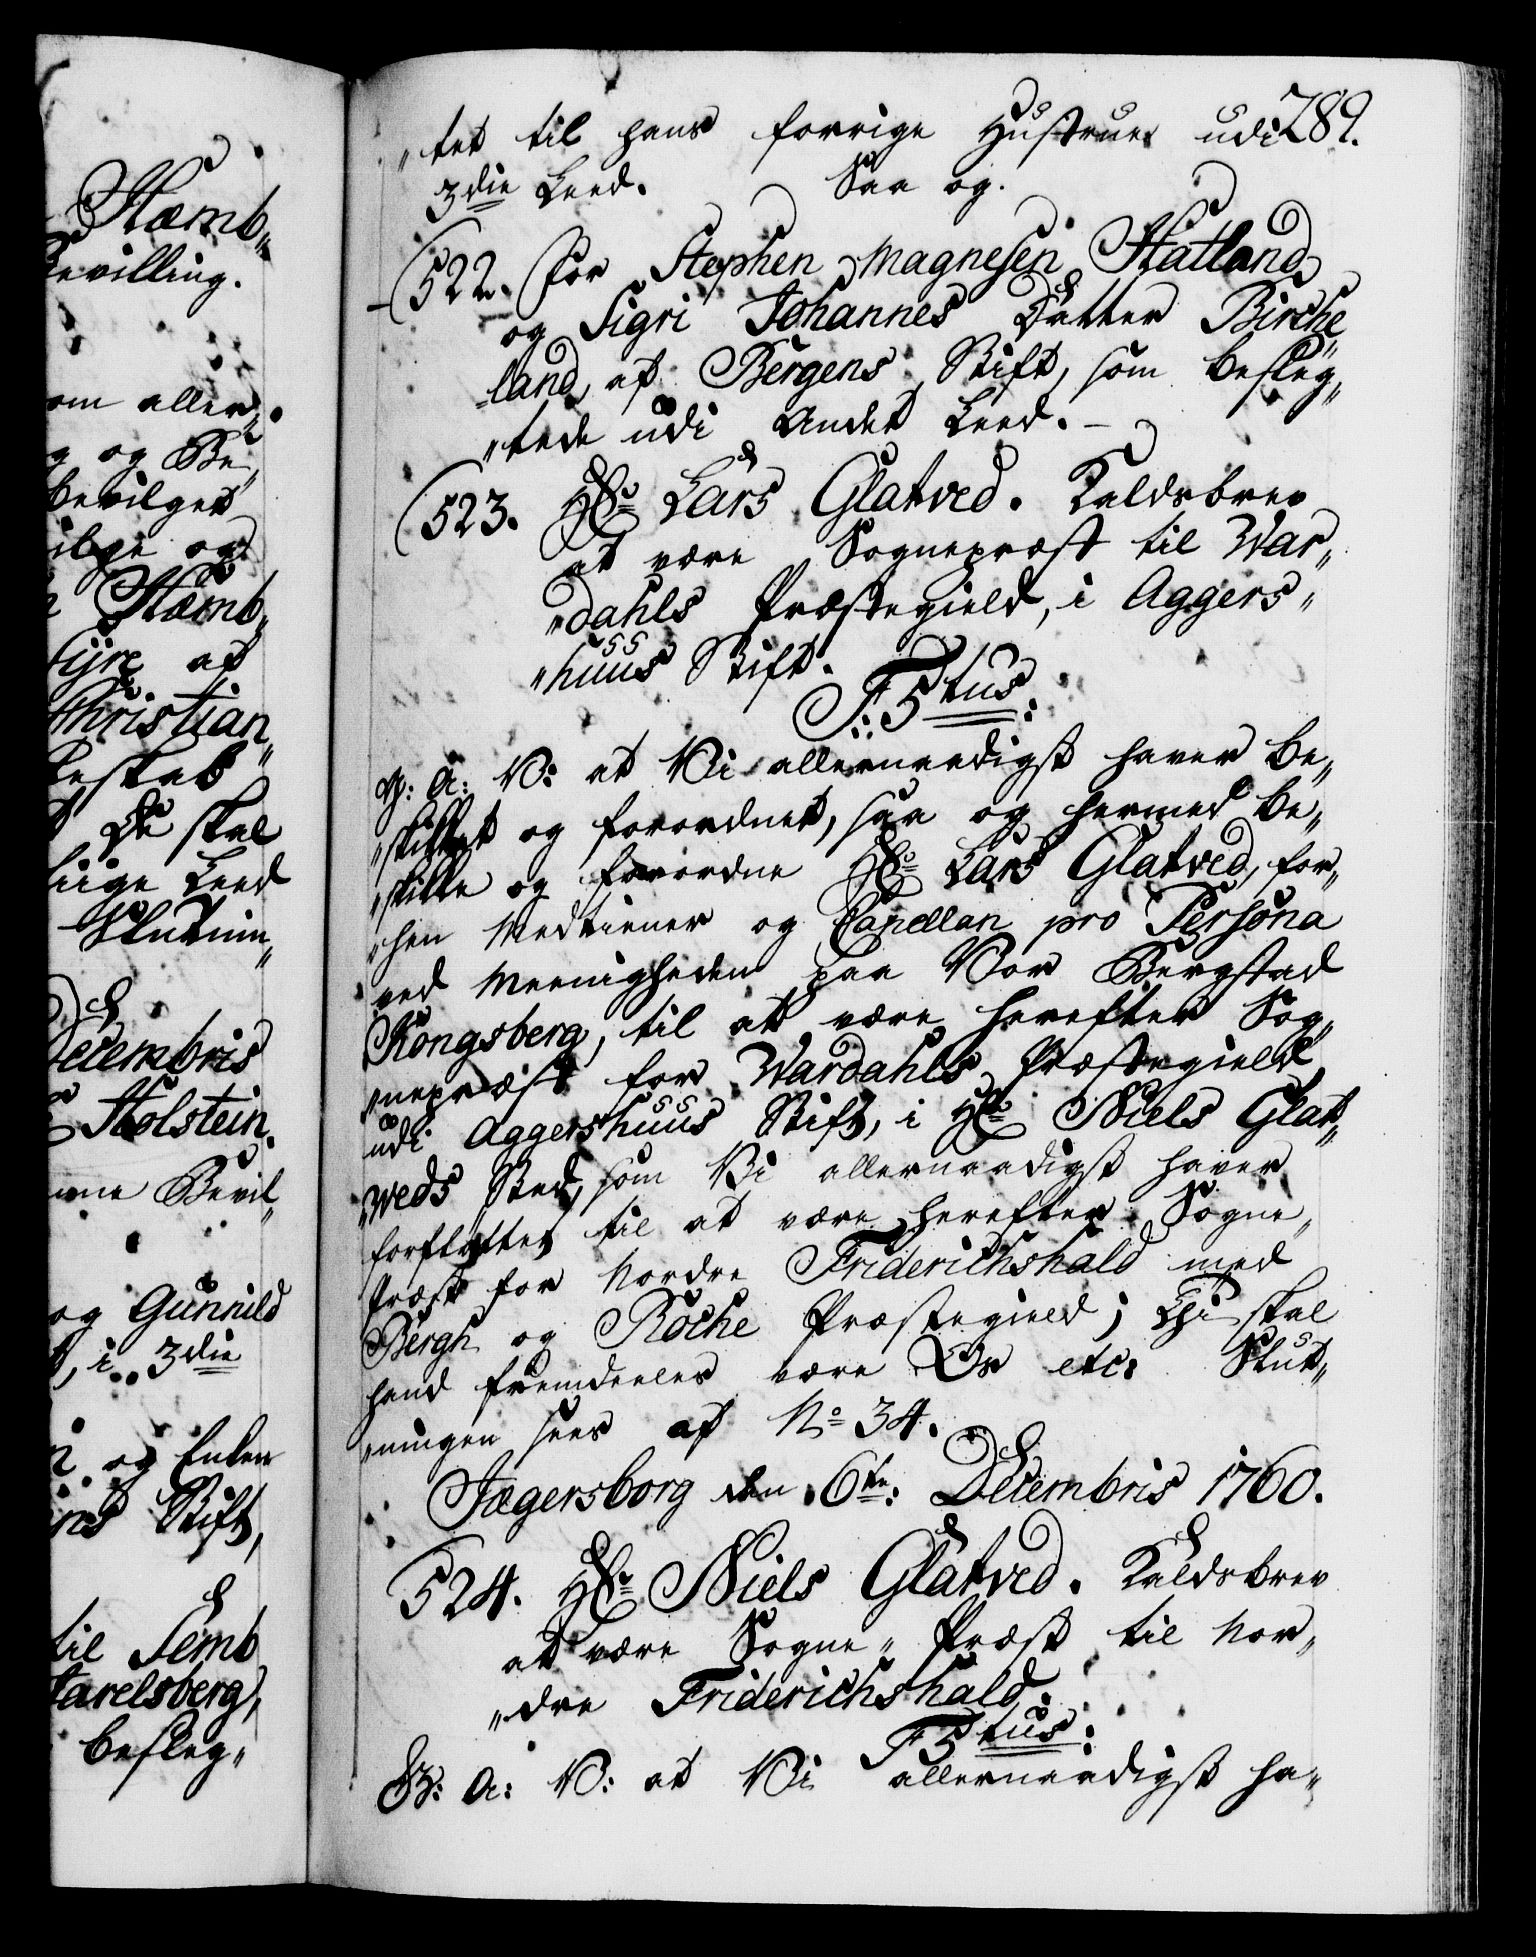 Hæmb„
Bevilling.
om aller„
g og Be„
bevilget
ilge og
Hæmb„
Fijre af
Christian„
eskab
De skal
liige Leed
Slutnin„
Decembris
Holstein.
nne Bevil„
og Gunnild
i 3die
og Enken
Stift,
til Semb
Jarelsberg,
besleg„
289.
„tet til hans forrige Hustrue udi
3die Leed. Saa og.
522. For Stephen Magnesen Hatland
og Sigri Johannes Datter Birche„
„land, af Bergens Stift, som besleg„
„tede udi Andet Leed. –
523. Hr. Lars Glatved. Kaldsbrev
at være Sognepræst til War„
„dahls Præstegield, i Aggers„
„huus Stift.
F: 5tus:
G: A: V: at Vi allernaadigst haver be„
„skikket og forordnet, saa og hermed be„
„skikke og forordne Hr. Lars Glatved, for„
„hen Medtiener og Capellan pro Persona
ved Meenigheden paa Vor Bergstad
Kongsberg, til at være herefter Sog„
„nepræst for Wardahls Præstegield
udi Aggershuus Stift, i Hr. Niels Glat„
„weds Sted, som Vi allernaadigst haver
forflyttet til at være herefter Sogne„
Præst for Nordre Friderichshald med
Bergh og Roche Præstegield; Thi skal
hand fremdeeles være Os etc: Slut„
„ningen sees af No 34.
Jægersborg den 6te: Decembris 1760.
524. Hr. Niels Glatved. Kaldsbrev
at være Sogne„Præst til Nor„
„dre Friderichshald.
F 5tus:
G: A: V: at Vi allernaadigst ha„